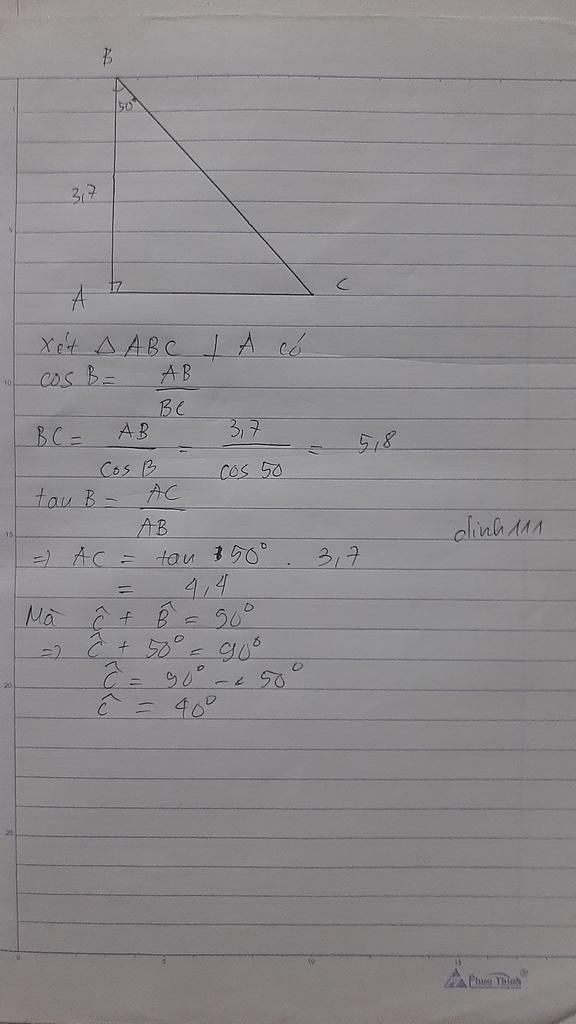 B
50°
3,7
A
C
Xét Δ ABC ⊥ A có
cos B = AB / BC
BC = AB / cos B = 3,7 / cos 50 = 5,8
tan B = AC / AB
dinh111
=> AC = tan 50° . 3,7
= 4,4
Mà Ĉ + B̂ = 90°
=> Ĉ + 50° = 90°
Ĉ = 90° - 50°
Ĉ = 40°
10
15
20
25
0
5
10
15
Phuc Thinh®